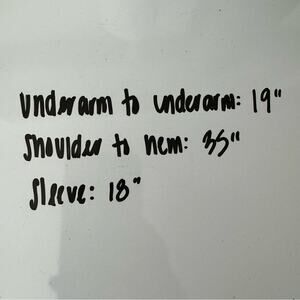 underarm to underarm: 19"
shoulder to hem: 35"
sleeve: 18"